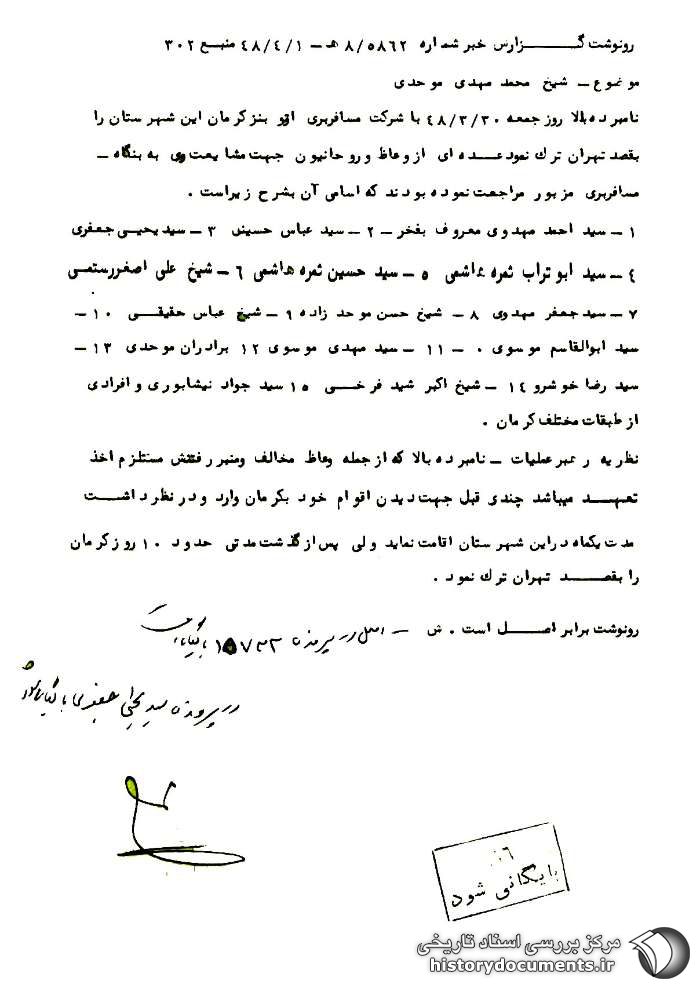 رونوشت گـــزارس خبر شماره ۸/۵۸۶۲ هـ - ۴۸/۴/۱ منبع ۳۰۲
موضوع - شیخ محمد مهدی موحدی
نامبرده بالا روز جمعه ۴۸/۳/۳۰ با شرکت مسافربری اتو بنز کرمان این شهرستان را
بقصد تهران ترك نمود عده ای از وعاظ و روحانیون جهت مشایعت وی به بنگاه -
مسافربری مزبور مراجعت نموده بودند که اسامی آن بشرح زیر است .
۱ - سید احمد مهدوی معروف بفخر - ۲ - سید عباس حسینی ۳ - سید یحیی جعفری
۴ - سید ابو تراب ثمره هاشمی ۵ - سید حسین ثمره هاشمی ۶ - شیخ علی اصغر رستمی
۷ - سید جعفر مهدوی ۸ - شیخ حسن موحد زاده ۹ - شیخ عباس حقیقی ۱۰ -
سید ابوالقاسم موسوی ۰ - ۱۱ - سید مهدی موسوی ۱۲ برادران موحدی ۱۳ -
سید رضا خوشرو ۱۴ - شیخ اکبر شید فرخی ۱۵ سید جواد نیشابوری و افرادی
از طبقات مختلف کرمان .
نظریه رهبر عملیات - نامبرده بالا که از جمله وعاظ مخالف ومنبر رفتنش مستلزم اخذ
تعهـد میباشد چندی قبل جهت دیدن اقوام خود بکرمان وارد و در نظر داشت
مدت یکماه در این شهرستان اقامت نماید ولی پس از گذشت مدتی حدود ۱۰ روز کرمان
را بقصد تهران ترك نمود .
رونوشت برابر اصل است . ش - اصل در پرونده ۱۵۷۳۲ بایگانی
در پرونده سید یحیی جعفری بایگانی شود
بایگانی شود
مرکز بررسی اسناد تاریخی
historydocuments.ir